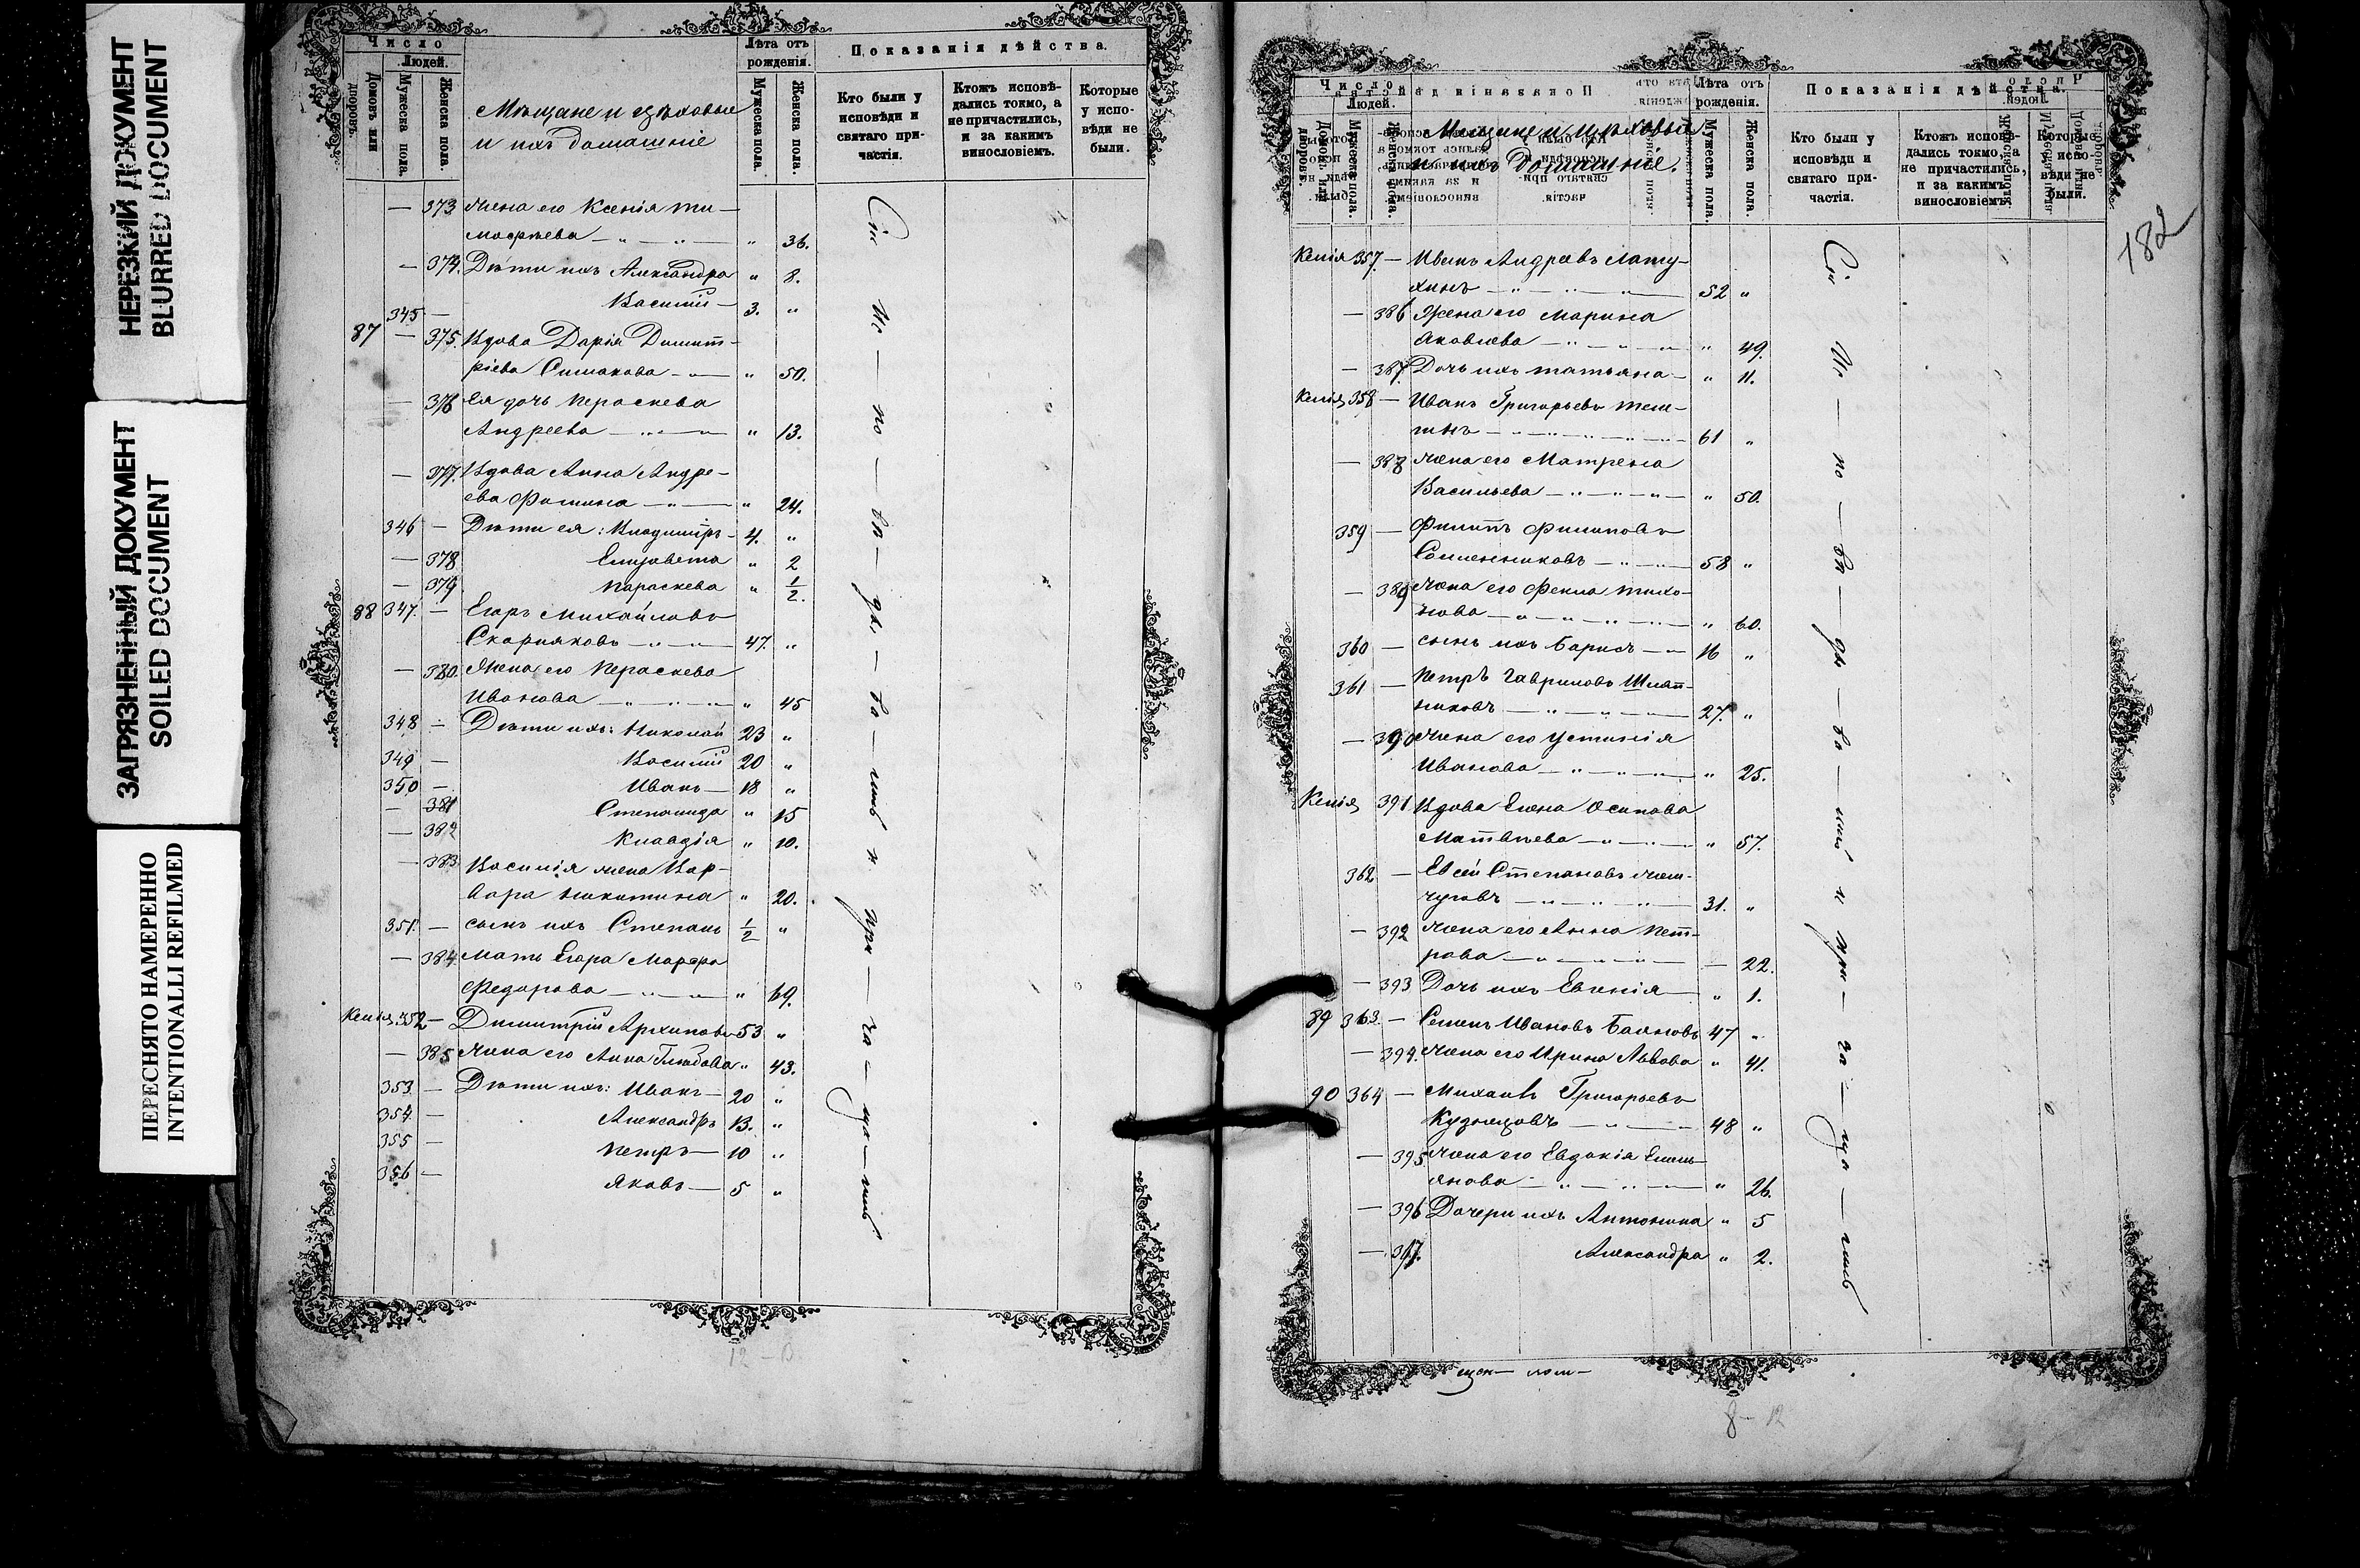 НЕРЕЗКИЙ ДОКУМЕНТ
BLURRED DOCUMENT
ЗАГРЯЗНЕННЫЙ ДОКУМЕНТ
SOILED DOCUMENT
ПЕРЕСНЯТО НАМЕРЕННО
INTENTIONALLI REFILMED
Число
Людей.
Домовъ или дворовъ.
Мужеска пола.
Женска пола.
Мѣщане и цѣховые
и ихъ домашніе
Лѣта отъ рожденія.
Мужеска пола.
Женска пола.
Показанія дѣйства.
Кто были у исповѣди и святаго причастія.
Ктожъ исповѣдались токмо, а не причастились, и за какимъ винословіемъ.
Которые у исповѣди не были.
— 373 жена его Ксенія Ти-
мофѣева — „ — „ — „ 36.
— 374. Дѣти ихъ Александра „ 8.
345 — Василій — 3. „
87 — 375. Вдова Дарія Димит-
ріева Симакова — „ — „ 50.
— 376 Ея дочь Параскева
Андреева — „ — „ 13.
— 377. Вдова Анна Андре-
ева Фомина — „ — „ 24.
346 — Дѣти ея: Владиміръ — 4. „
— 378 Елизавета „ 2
— 379 Параскева „ 1/2.
88 347. — Егоръ Михайловъ
Скорняковъ — „ — „ — 47. „
— 380. Жена его Параскева
Иванова — „ — „ — „ 45
348 — Дѣти ихъ: Николай 23 „
349 — Василій 20 „
350 — Иванъ — 18 „
— 381 Степанида „ 15
— 382 Клавдія „ 10.
— 383 Василія жена Вар-
вара Никитина „ 20.
351. — сынъ ихъ Степанъ 1/2 „
— 384. Мать Егора Марфа
Федорова — „ — „ 69.
Келія 352 — Димитрій Архиповъ 53 „
— 385 Жена его Анна Глѣбова „ 43.
353 — Дѣти ихъ: Иванъ — 20 „
354 — Александръ 13. „
355 — Петръ — 10 „
356 — Яковъ — 5 „
Сіи Ис — по — вѣ — ды — ва — лись и при — ча — ща — лись
12 – 13
Число
Людей.
Домовъ или дворовъ.
Мужеска пола.
Женска пола.
Мѣщане и цѣховые
и ихъ домашніе.
Лѣта отъ рожденія.
Мужеска пола.
Женска пола.
Показанія дѣйства.
Кто были у исповѣди и святаго причастія.
Ктожъ исповѣдались токмо, а не причастились, и за какимъ винословіемъ.
Которые у исповѣди не были.
182
Келія 357. — Иванъ Андреевъ Лату-
хинъ — „ — „ — 52 „
— 386 Жена его Марина
Яковлева — „ — „ — „ 49.
— 387. Дочь ихъ Татьяна — „ 11.
Келія 358 — Иванъ Григорьевъ
— „ — „ — 61 „
— 388 жена его Матрена
Васильева — „ — „ — „ 50.
359 — Филипъ Филиповъ
— „ — 58 „
— 389 Жена его Фекла Тихо-
нова — „ — „ — „ 60.
360 — сынъ ихъ Борисъ — 16 „
361 — Петръ Гавриловъ Шляп-
никовъ — „ — „ — 27. „
— 390 Жена его Устинія
Иванова — „ — „ — „ 25.
Келія 391 Вдова Елена Осипова
Матвѣева — „ — „ 57.
362 — Евсей Степановъ Жем-
чуговъ — „ — „ — 31. „
— 392 Жена его Анна Пет-
рова — „ — „ — 22.
— 393 Дочь ихъ Евгенія — „ 1.
89 363. — Семенъ Ивановъ 47 „
— 394. Жена его Ирина Львова „ 41.
90 364 — Михаилъ Григорьевъ
Кузнецовъ — „ — 48 „
— 395 Жена его Евдокія Емель-
янова — „ — „ — „ 26.
— 396 Дочери ихъ Антонина „ 5
— 397. Александра „ 2.
Сіи Ис — по — вѣ — ды — ва — лись и при — ча — ща — лись
8 – 12